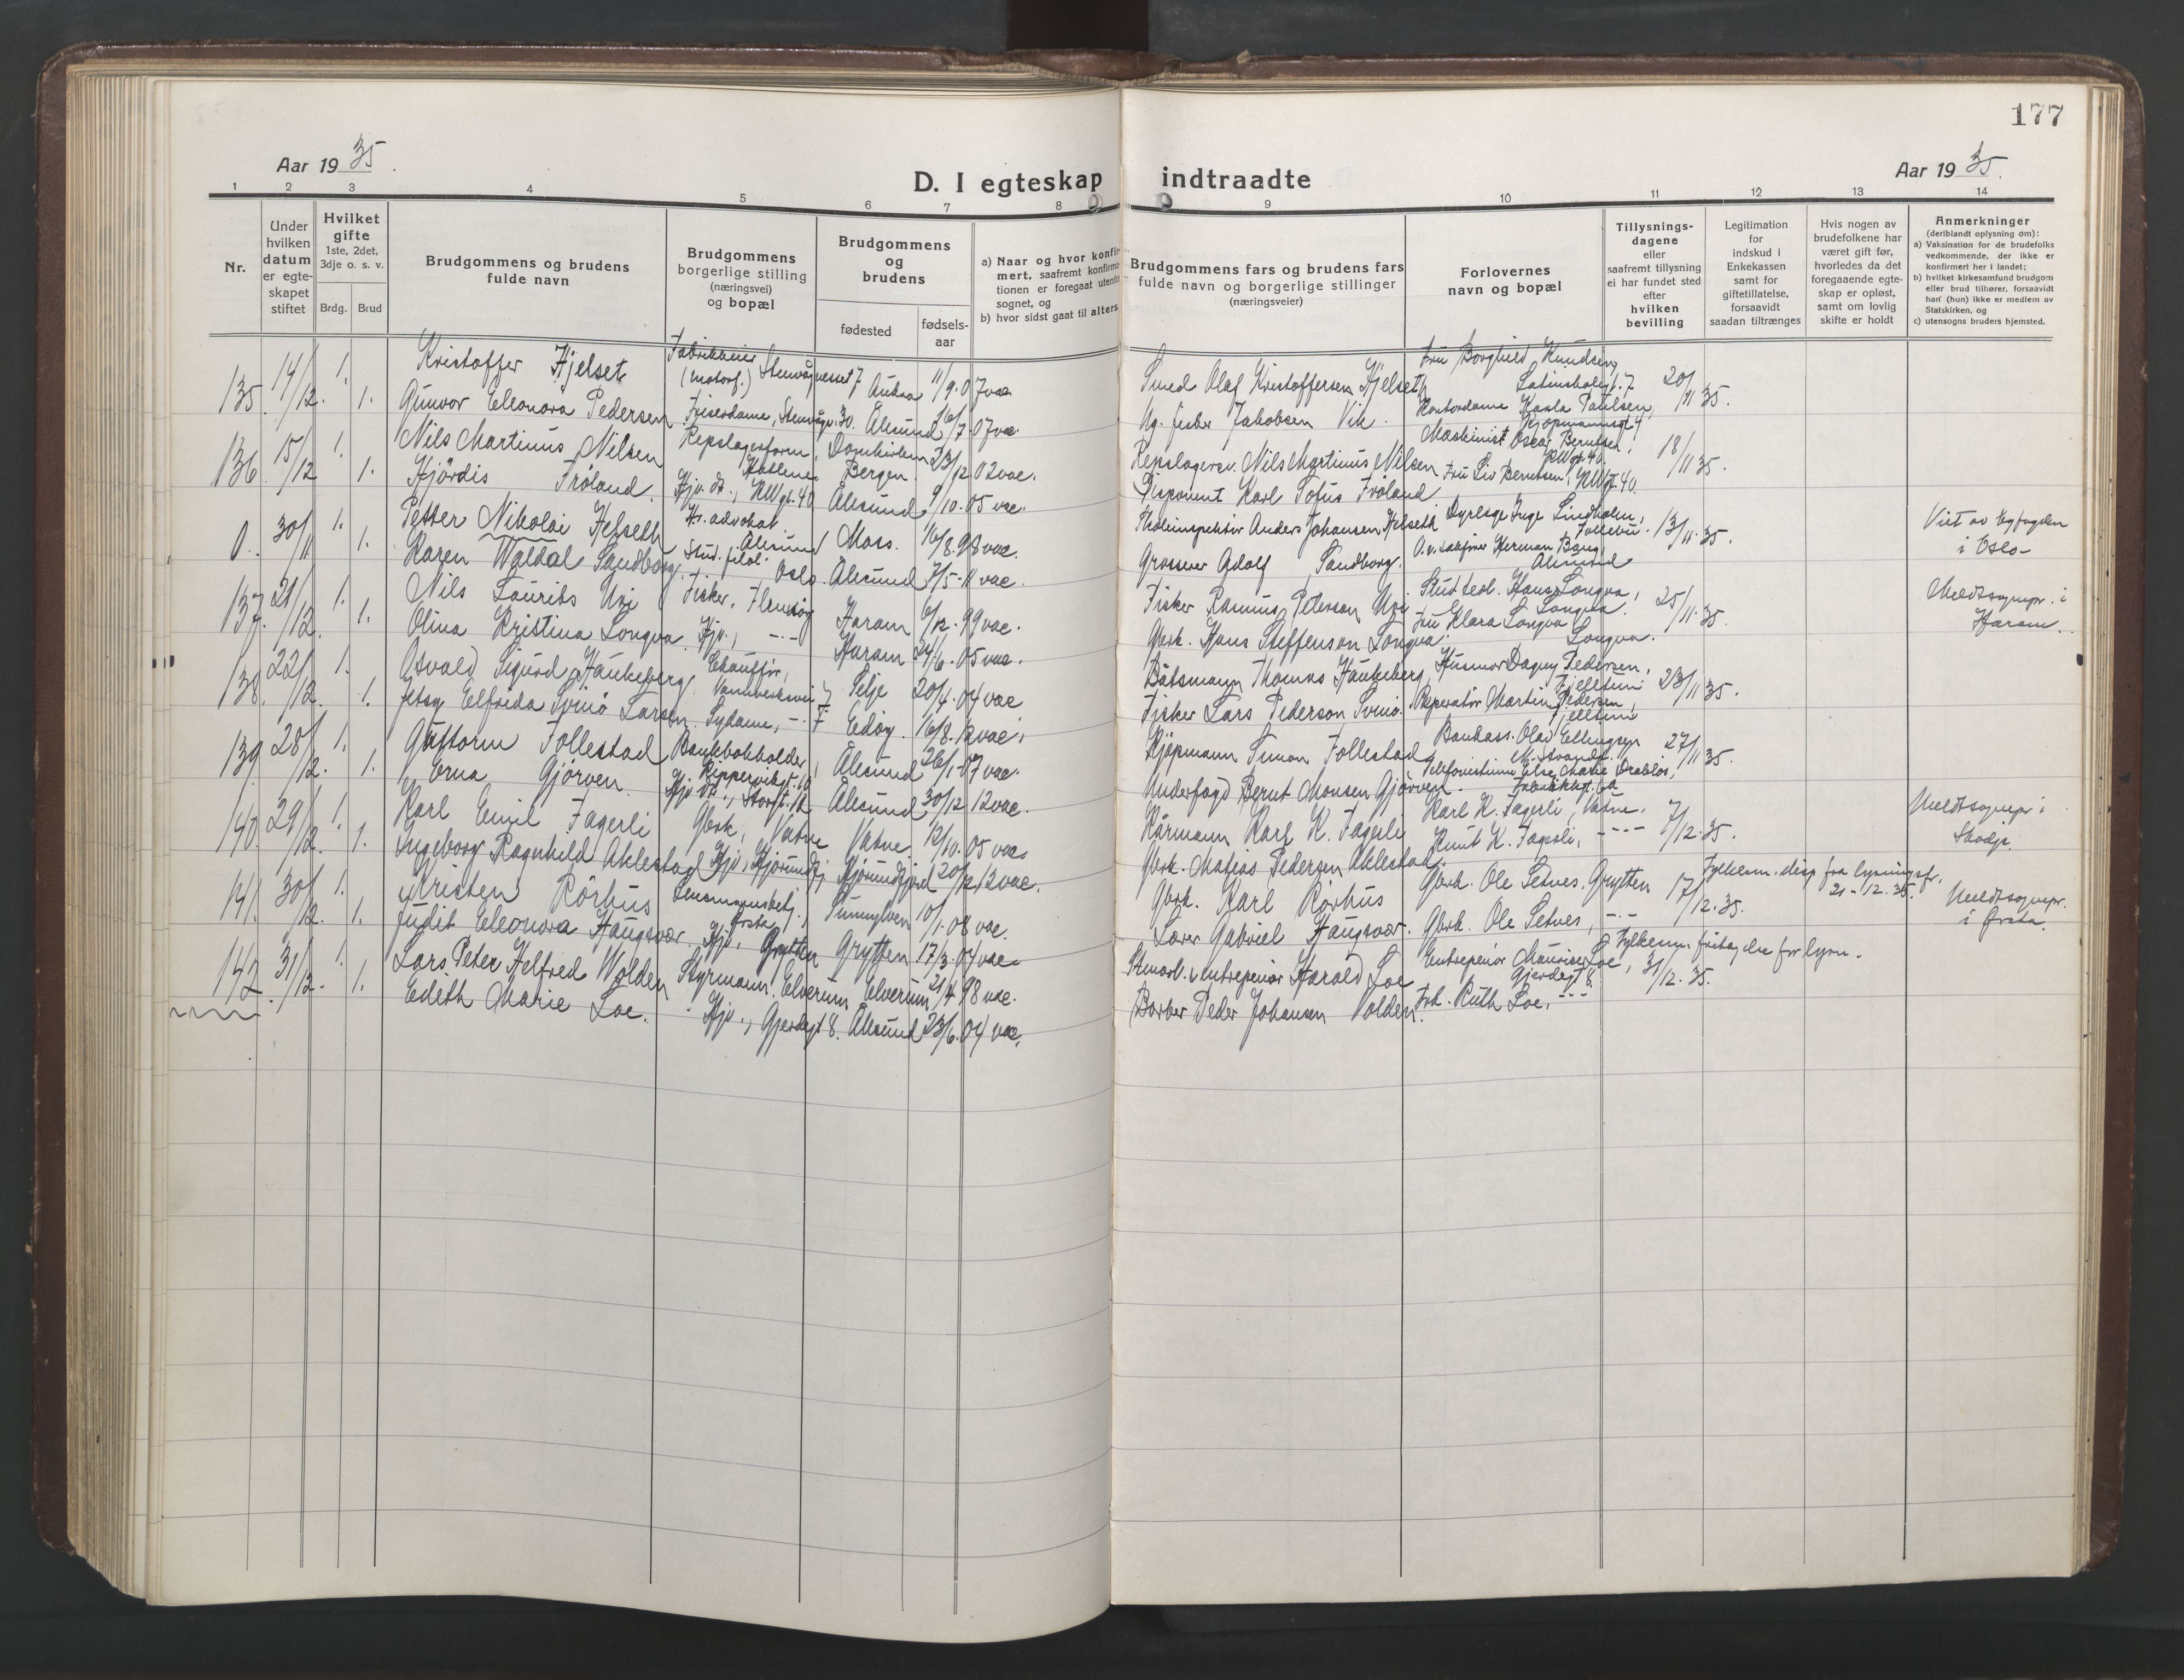 177
Aar 19 35.
D. I egteskap indtraadte
Aar 19 35.
1 2 3 4 5 6 7 8 9 10 11 12 13 14
Nr.
Under hvilken datum er egte- skapet stiftet
Hvilket gifte 1ste, 2det, 3dje o. s. v.
Brdg. Brud
Brudgommens og brudens fulde navn
Brudgommens borgerlige stilling (næringsvei) og bopæl
Brudgommens og brudens
fødested
fødsels- aar
a) Naar og hvor konfir- mert, saafremt konfirma- tionen er foregaat utenfor sognet, og
b) hvor sidst gaat til alters
Brudgommens fars og brudens fars fulde navn og borgerlige stillinger (næringsveier)
Forlovernes navn og bopæl
Tillysnings- dagene eller saafremt tillysning ei har fundet sted efter hvilken bevilling
Legitimation for indskud i Enkekassen samt for giftetillatelse, forsaavidt saadan tiltrænges
Hvis nogen av brudefolkene har været gift før, hvorledes da det foregaaende egte- skap er opløst, samt om lovlig skifte er holdt
Anmerkninger (deriblandt oplysning om):
a) Vaksination for de brudefolks vedkommende, der ikke er konfirmert her i landet;
b) hvilket kirkesamfund brudgom eller brud tilhører, forsaavidt han (hun) ikke er medlem av Statskirken, og
c) utensogns bruders hjemsted.
135. 14/12. 1. Kristoffer Hjelset Fabrikkeier (motorf.) Stenvågnesset 7 Aukra 11/9.07 vac. Smed Olaf Kristoffersen Hjelset Fru Borghild Knudsen, Latinskolegt. 7 20/11 35.
1. Gunvor Elleonora Pedersen Friserdame, Stenvågv. 30. Ålesund 16/7.07 vac. Ug. fisker Jakobsen Vik. Kontordame Karla Paulsen, Kjøpmannsgt. 4
136. 15/12 1. Nils Martinus Nilsen Repslagerform., Domkirken Bergen. 23/12 02 vac. Repslagerarb. Nils Martinus Nilsen Maskinist Oscar Berntsen, RWgt. 40. 18/11 35.
1. Hjördis Fröland. Hj.v. dt., RWgt. 40 Ålesund 9/10.05 vac. Disponent Karl Tofus Fröland Fru Liv Berntsen, RWgt. 40.
0. 30/11 1. Petter Nikolai Helseth Hr. advokat. Ålesund Moss. 16/8.98 vac. Skoleinspektör Anders Johansen Helseth Dyrlege Inge Lindholm, Follebu. 13/11.35. Viet av byfogden i Oslo
1. Karen Waldal Sandborg. Stud. filol. Oslo. Ålesund 7/5-11 vac. Grosserer Adolf Sandborg. O.r.sakfører Herman Bang Ålesund
137. 21/12. 1. Nils Laurits Uri Fisker, Flemsöy Haram 6/12.99 vac. Fisker Rasmus Peterson Uri Stud teol. Hans Longva, Longva. 25/11.35. Meldt sognepr. i Haram.
1. Olina Kristina Longva. Hjv., -"- Haram 24/6.05 vac. Gbrk. Hans Steffenson Longva. Fru Klara Longva Longva.
138. 22/12. 1. Osvald Sigurd Haukeberg. Chauffør, Vannverksvei 7 Selje 20/4.04 vac Båtsmann Thomas Haukeberg, Husmor Dagny Pedersen, Fjelltun 23/11 35.
1. Elfrida Svinö Larsen Sydame, -"- 7 Edöy. 16/8.12 vac. Fisker Lars Pederson Svinö. Reperatör Martin Pedersen, Fjelltun
139. 28/12. 1. Guttorm Follestad Bankbokholder, Kippervikgt. 10 Ålesund 26/1-07 vac. Kjöpmann Simon Follestad Bankass. Olav Ellingsen N. Strandgt. 27/11 35.
1. Erna Gjörven. Hjv. dt., Storgt. 12 Ålesund 30/12 12 vac. Underfogd Bernt Monsen Gjörven. Telefonistinne Else Marie Drabløs,
140. 29/12. 1. Karl Emil Fagerli Gbrk, Vatne Vatne 12/10.05 vac. Kårmann Karl K. Fagerli Karl K. Fagerli, Vatne. 7/12.35. Meldt sognepr. i Skodje.
1. Ingeborg Ragnhild Aklestad Hjv, Hjörundfj. Hjörundfjord 20/2 12 vac. Gbrk. Matias Pedersen Aklestad. Knut K. Fagerli, -"-
141. 30/12. 1. Kristen Rörhus Lensmannsbetj., Ørsta Sunnylven 10/1.08 vac. Gbrk. Karl Rörhus Gbrk. Ole Setnes, Grytten 17/12.35. Fylkesm. disp fra lysningsfr. 21-12.35. Meldt sognepr. i Ørsta.
1. Judit Elleonora Haugsvær. Hjv, Grytten Grytten 17/3.04 vac. Lærer Gabriel Haugsvær. Gbrk. Ole Setnes, -"-
142. 31/12. 1. Lars Peter Helfred Wolden Styrmann, Elverum Elverum 21/4 98 vac. Stenarb. & entrepenör Harald Loe Entrepenör Mauritz Loe, Gjerdegt. 8. 31/12.35. Fylkesm. fritagelse for lysn.
1. Edith Marie Loe. Hjv., Gjerdegt 8. Ålesund 23/6.04 vac. Barber Peder Johansen Volden. Frk. Ruth Loe, -"-